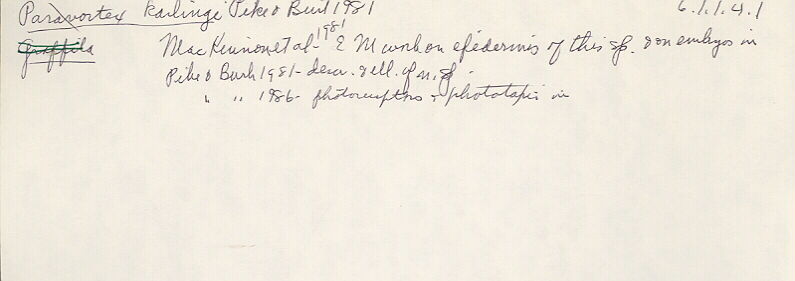 Paravortex karlingi Pike & Burt 1981 6.1.1.4.1
Graffilla
MacKinnon et al - 1981 E M work on epidermis of this sp. & on embryos in
Pike & Burt 1981 - descr. & ill. of n. sp.
" " 1986 - photoreceptors & phototaxis in